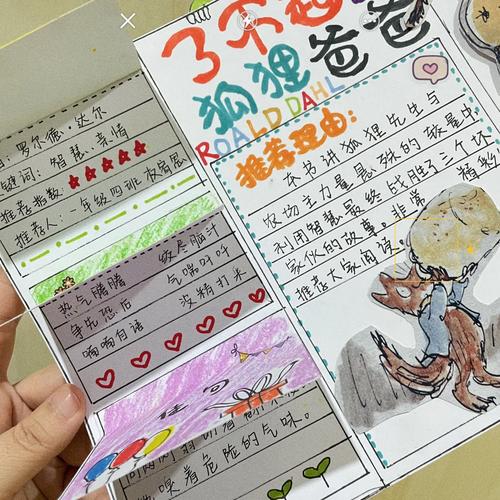 了不起
狐狸爸爸
ROALD DAHL
推荐理由:
本书讲狐狸先生与
农场主力量悬殊的较量中
利用智慧最终战胜了三个坏
家伙的故事。非常精彩
推荐大家阅读。
罗尔德·达尔
键词:智慧、亲情
推荐指数:
推荐人:一年级四班
热气腾腾 绞尽脑汁
争先恐后 气喘吁吁
喃喃自语 没精打采
佳句
嗅着危险的气味。